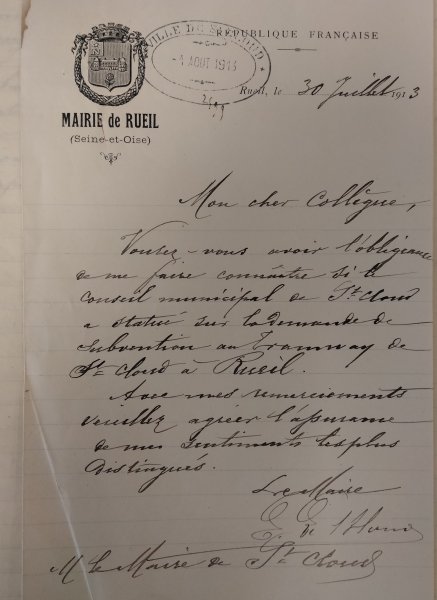 RÉPUBLIQUE FRANÇAISE
VILLE DE St CLOUD
AOUT 1913
Rueil, le 30 Juillet 1913
MAIRIE de RUEIL
(Seine-et-Oise)
Mon cher Collègue,
Voulez-vous avoir l'obligeance
de me faire connaître si le
Conseil municipal de St Cloud
a statué sur la demande de
Subvention au Tramway de
St Cloud à Rueil.
Avec mes remerciements
veuillez agréer l'assurance
de mes sentiments les plus
distingués.
Le Maire
M. le Maire de St Cloud